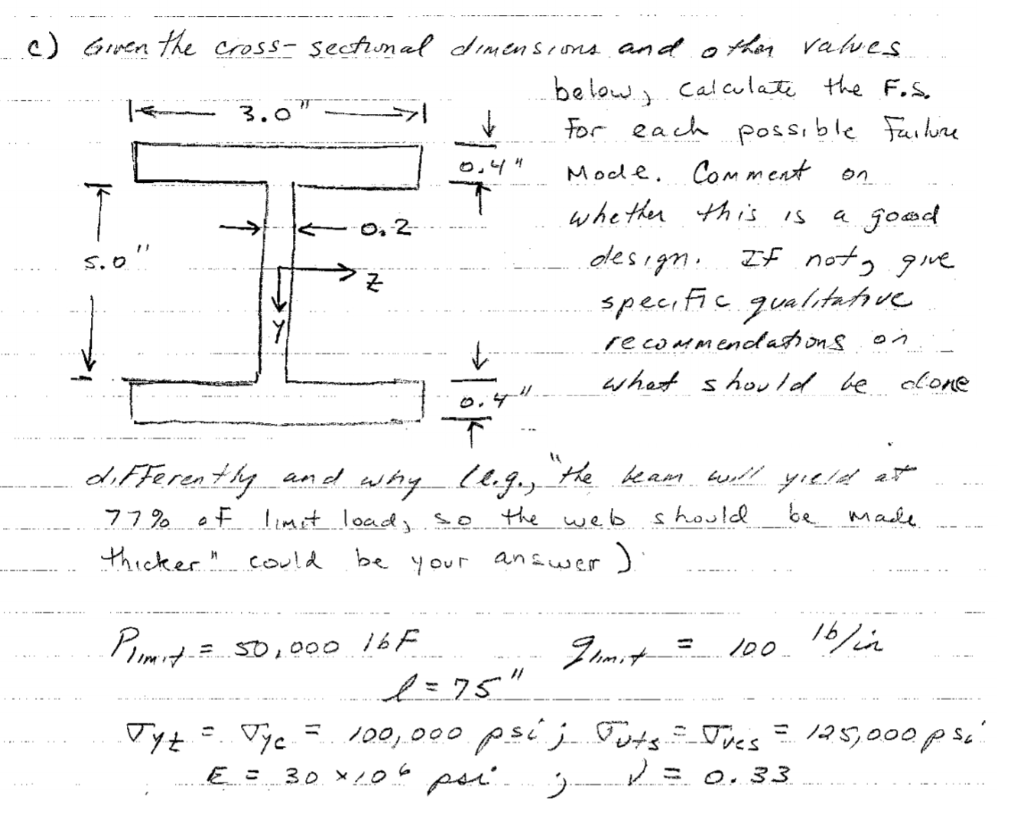 c) Given the cross-sectional dimensions and other values
below, calculate the F.S.
3.0"
for each possible failure
0.4"
Mode. Comment on
whether this is a good
0.2
design. If not, give
5.0"
Z
specific qualitative
Y
recommendations on
what should be done
0.4"
differently and why (e.g., "the beam will yield at
77% of limit load, so the web should be made
thicker" could be your answer)
Plimit = 50,000 lbf qlimit = 100 lb/in
l = 75"
σyt = σyc = 100,000 psi; σuts = σucs = 125,000 psi
E = 30 × 10⁶ psi ; ν = 0.33